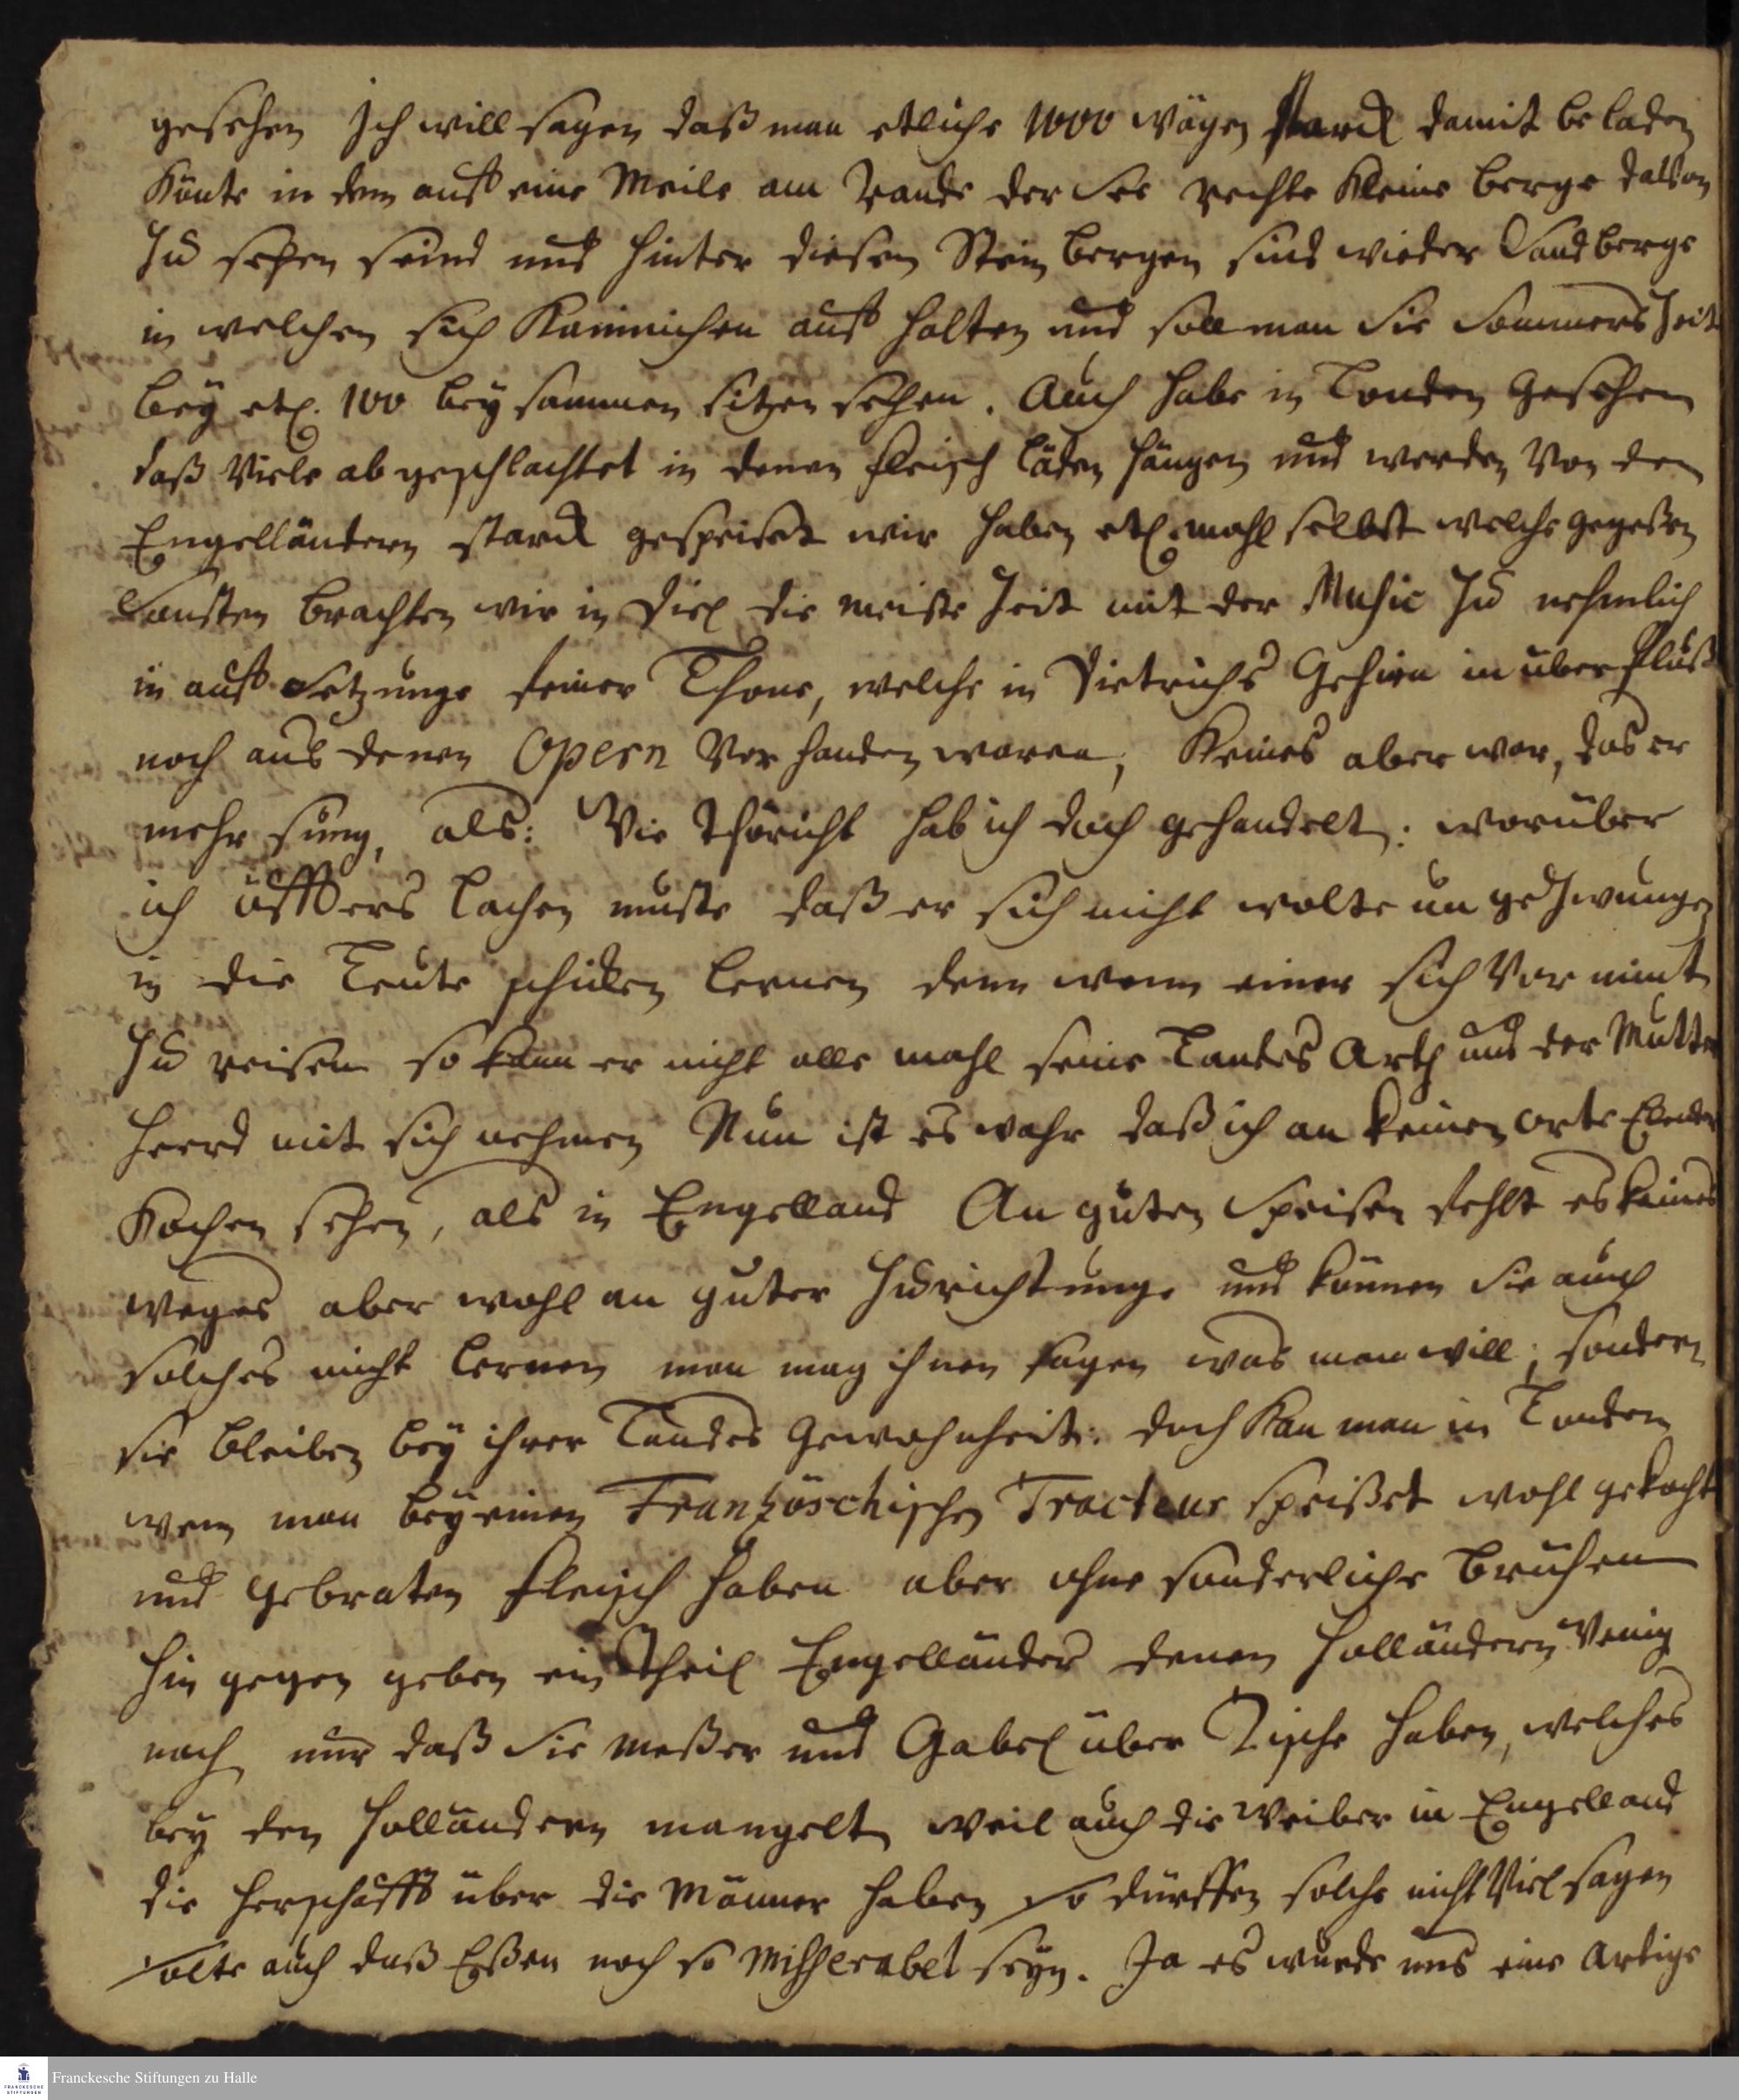 gesehen Ich will sagen daß man etliche 1000 wägen starck damit beladen
Könte in dem auff eine Meile am Rande der See rechte Kleine berge davon
Zu sehen seind und hinter diesen Stein bergen sind wieder Sandberge
in welchen sich Kaninichen auff halten und soll man Sie Sommers Zeit
bey etl. 100 beysammen sitzen sehen. Auch habe in Londen Gesehen
daß Viele ab geschlachtet in denen fleisch läden hängen und werden Von den
Engelländern starck gespeiset wir haben etl. mahl selbst welche gegeßen
Sonsten brachten wir in Diel die meiste Zeit mit der Music Zu nehmlich
in auff Setzunge seiner Thone, welche in Dietrichs Gehirn in überfluß
noch aus denen Opern Vorhanden waren, Keines aber war, das er
mehr sung, als: Wie thöricht hab ich doch gehandelt: worüber
ich öffters lachen muste daß er sich nicht wolte un gezwungen
in die Leute schicken lernen denn wenn einer sich Vor nimt
Zu reisen so kann er nicht alle mahl seine Landes Arth und der Mutter
heerd mit sich nehmen Nun ist es wahr daß ich an keinen orte Elender
Kochen sehen, als in Engelland An guten Speisen fehlt es keines
weges aber wohl an guter Zurichtunge und können Sie auch
solches nicht lernen man mag ihnen sagen was man will, sondern
sie bleiben bey ihrer Landes Gewohnheit. doch Kan man in Londen
wenn man bey einen Französchischen Tracteur speißet wohl gekocht
und Gebraten fleisch haben aber ohne sonderliche brühen
hin gegen geben ein Theil Engelländer denen Holländern Wenig
nach nur daß Sie Meßer und Gabel über Tische haben, welches
bey den Holländern mangelt weil auch die Weiber in Engelland
die herschafft über die Männer haben so dürffen solche nicht Viel sagen
solte auch daß Eßen noch so Misserabel seyn. Ja es wurde uns eine Artige
Franckesche Stiftungen zu Halle
FRANCKESCHE STIFTUNGEN